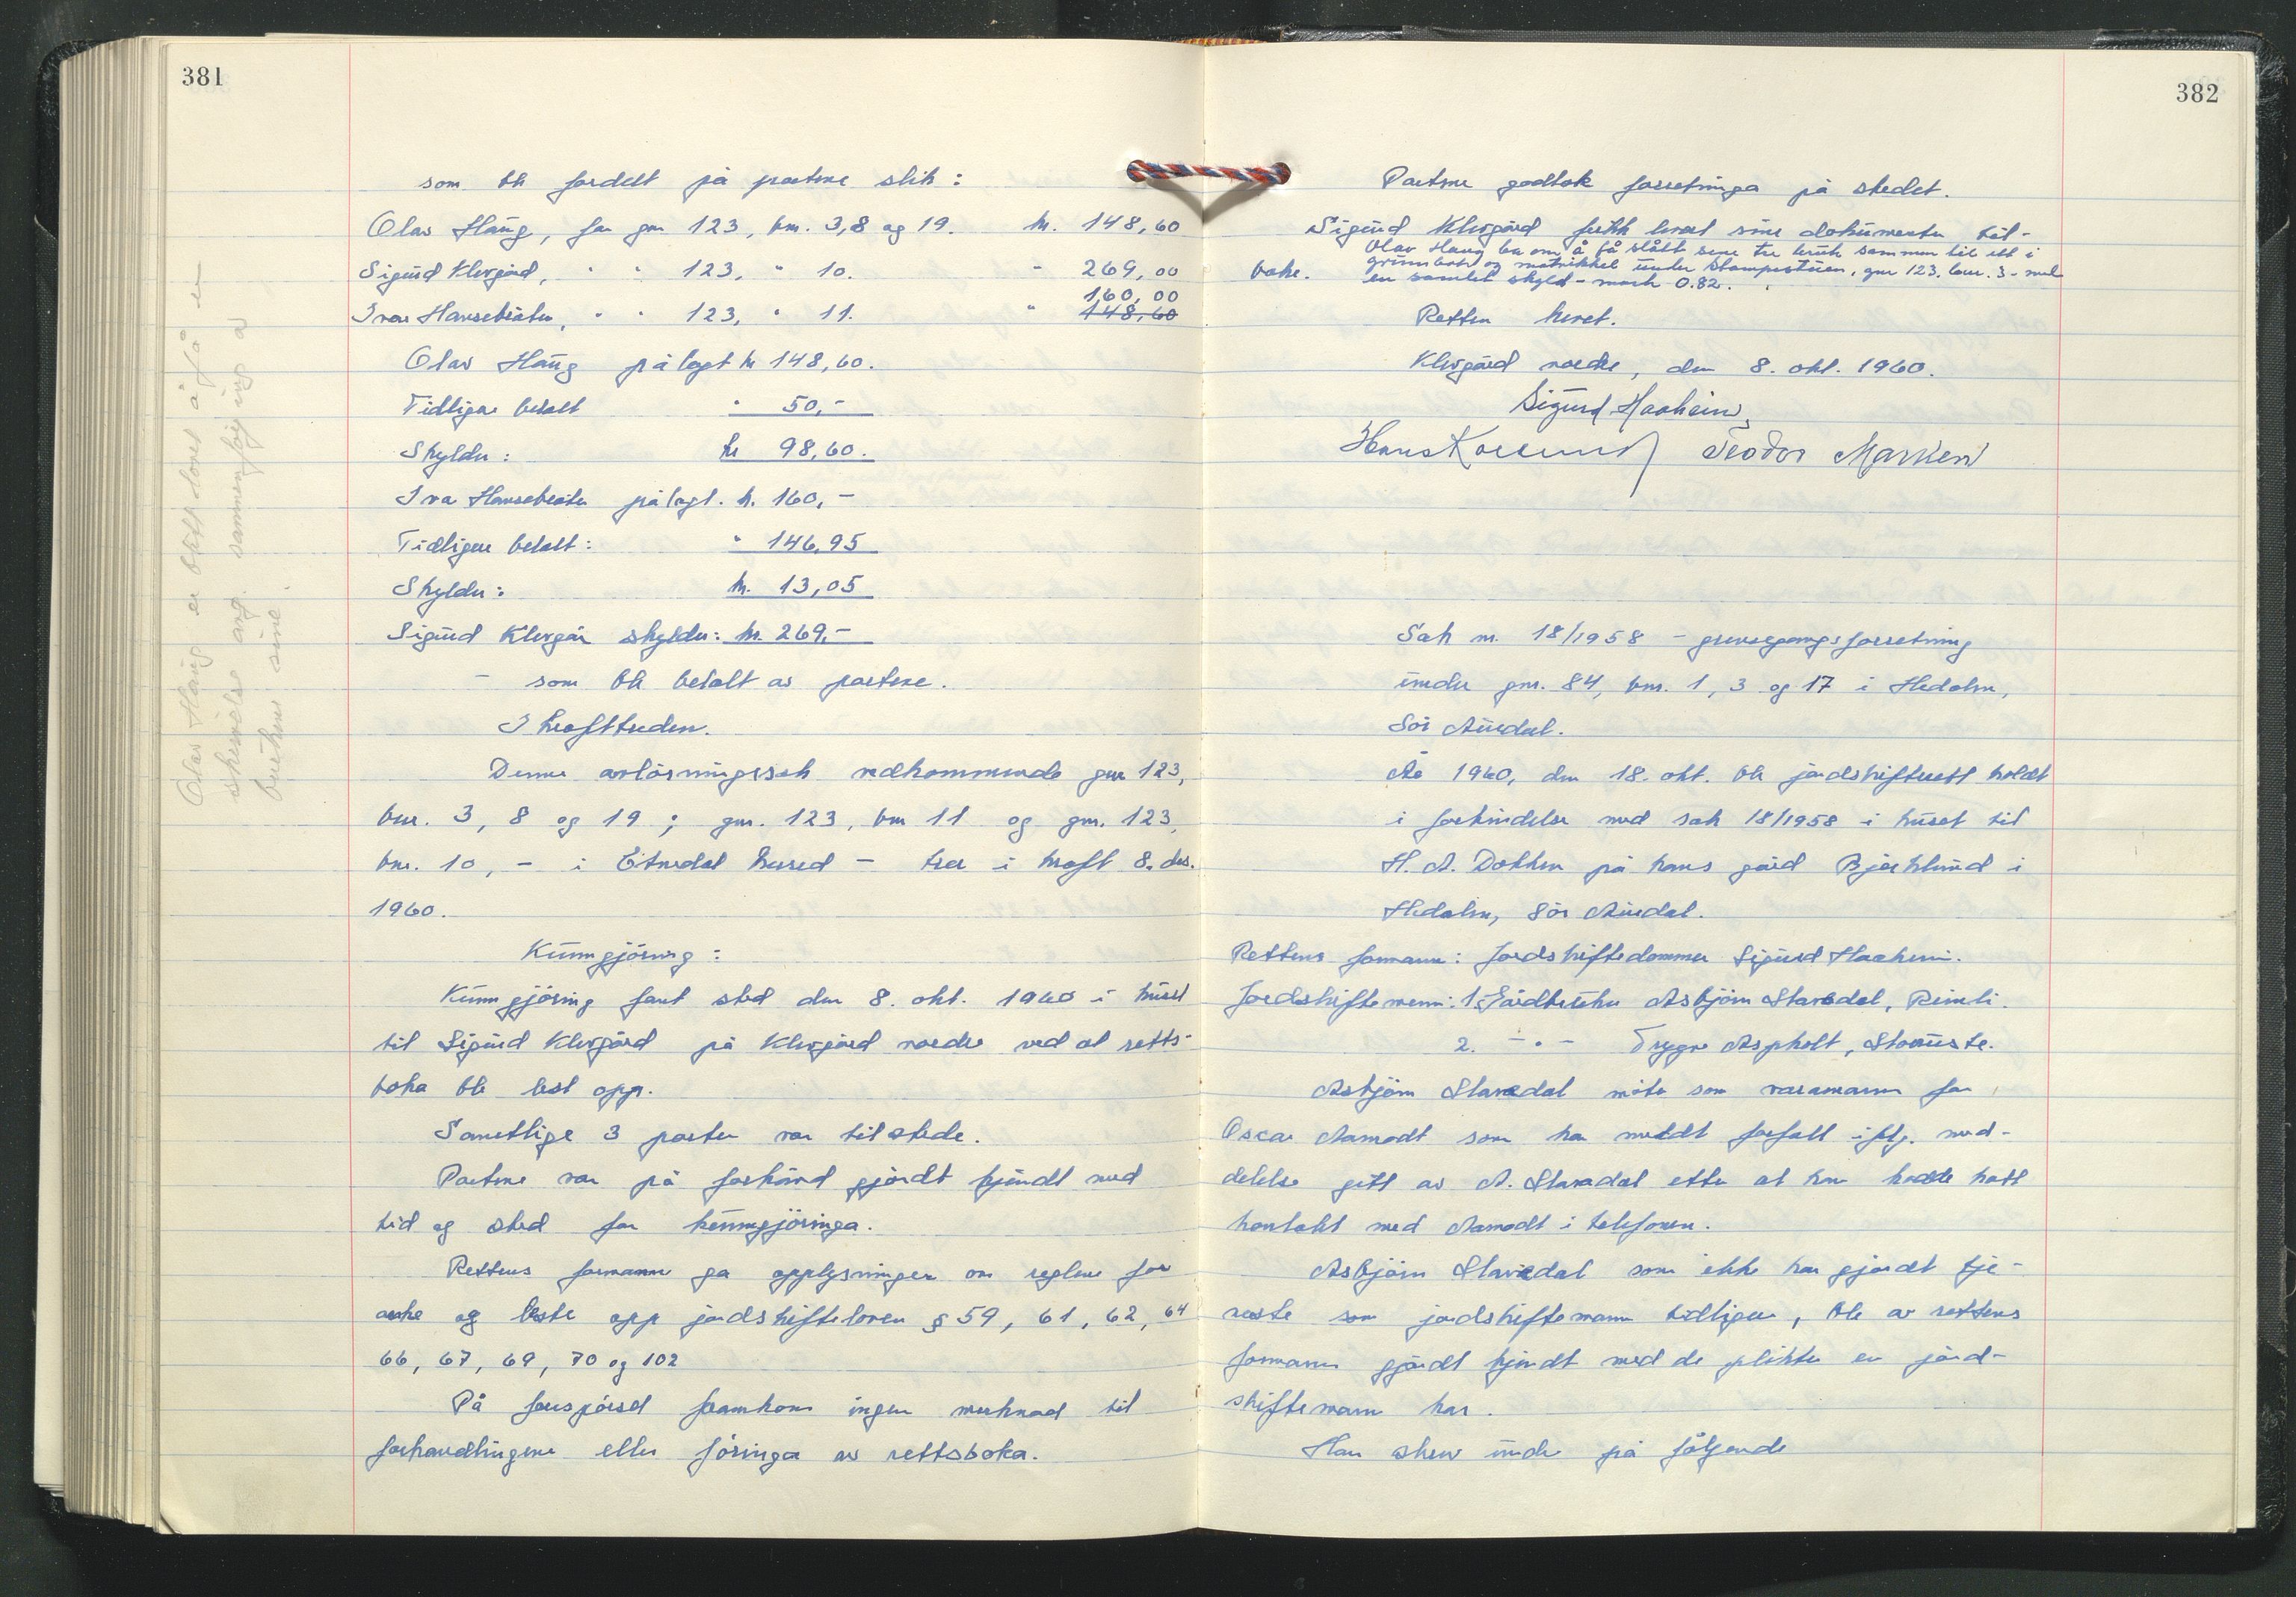 381
som ble fordelt på partene slik:
Olav Haug, for gnr 123, bnr. 3,8 og 19. kr. 148,60
Sigurd Klevgård, " " 123, " 10. " 269,00
160,00
Ivar Hansebråten, " " 123, " 11. " 148,60
Olav Haug pålagt kr 148,60.
Tidligere betalt " 50,-
Skylder: kr 98,60.
Ivar Hansebråten pålagt. kr. 160,-
Tidligere betalt: " 146,95
Skylder: kr. 13,05
Sigurd Klevgår skylder: kr. 269,-
- som ble betalt av partene.
I krafttreden.
Denne avløsningssak vedkommende gnr 123,
bnr. 3, 8 og 19; gnr. 123, bnr 11 og gnr. 123,
bnr. 10, - i Etnedal herred - trer i kraft 8. des.
1960.
Kunngjøring:
Kunngjøring fant sted den 8. okt. 1960 i huset
til Sigurd Klevgård på Klevgård nordre ved at retts-
boka ble lest opp.
Samtlige 3 parter var tilstede.
Partene var på forhånd gjordt kjendt med
tid og sted for kunngjøringa.
Rettens formann ga opplysninger om reglene for
anke og leste opp jordskifteloven § 59, 61, 62, 64
66, 67, 69, 70 og 102
På forespørsel framkom ingen merknad til
forhandlingene eller føringa av rettsboka.
Olav Haug er blitt lovet å få en
skrivelse ang. sammenføying a
brukene sine.
382
Partene godtok forretninga på stedet.
Sigurd Klevgård fikk levert sine dokumenter til-
Olav Haug ba om å få slått sine tre bruk sammen til ett i
grunnbok og matrikkel under Stampestuen, gnr 123. bnr. 3 - med
bake. en samlet skyld - mark 0.82.
Retten hevet.
Klevgård nordre, den 8. okt. 1960.
Sigurd Haaheim
Hans Teodor Marken
Sak nr. 18/1958 - grensegangsforretning
under gnr. 84, bnr. 1, 3 og 17 i Hedalen,
Sør Aurdal.
År 1960, den 18. okt. ble jordskifterett holdt
i forbindelse med sak 18/1958 i huset til
H. A. Dokken på hans gård Bjørklund i
Hedalen, Sør Aurdal.
Rettens formann: Jordskiftedommer Sigurd Haaheim.
Jordskiftemenn: 1. Gårdbruker Asbjørn Stavedal, Reinli.
2. - " - Trygve Aspholt,
Asbjørn Stavedal møter som varamann for
Oscar Aamodt som har meddt forfall iflg. med-
delelse gitt av A. Stavedal etter at han hadde hatt
kontakt med Aamodt i telefonen.
Asbjørn Stavedal som ikke har gjordt tje-
neste som jordskiftemann tidligere, ble av rettens
formann gjordt kjendt med de plikter en jord-
skiftemann har.
Han skrev under på følgende